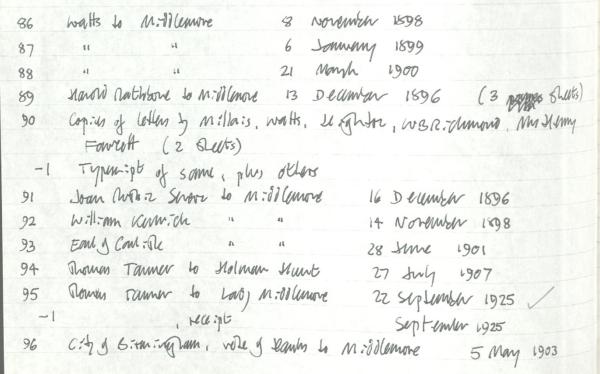 86 Watts to Middlemore 8 November 1898
87 " " 6 January 1899
88 " " 21 March 1900
89 Harold Rathbone to Middlemore 13 December 1896 (3 sheets)
90 Copies of letters by Millais, Watts, Leighton, W B Richmond, Mrs Henry
Fawcett (2 sheets)
-1 Typescript of same, plus others
91 to Middlemore 16 December 1896
92 William Kenrick " " 14 November 1898
93 Earl of Carlisle " " 28 June 1901
94 Thomas Tanner to Holman Hunt 27 July 1907
95 Thomas Tanner to Lady Middlemore 22 September 1925 ✓
-1 , receipt September 1925
96 City of Birmingham, vote of thanks to Middlemore 5 May 1903